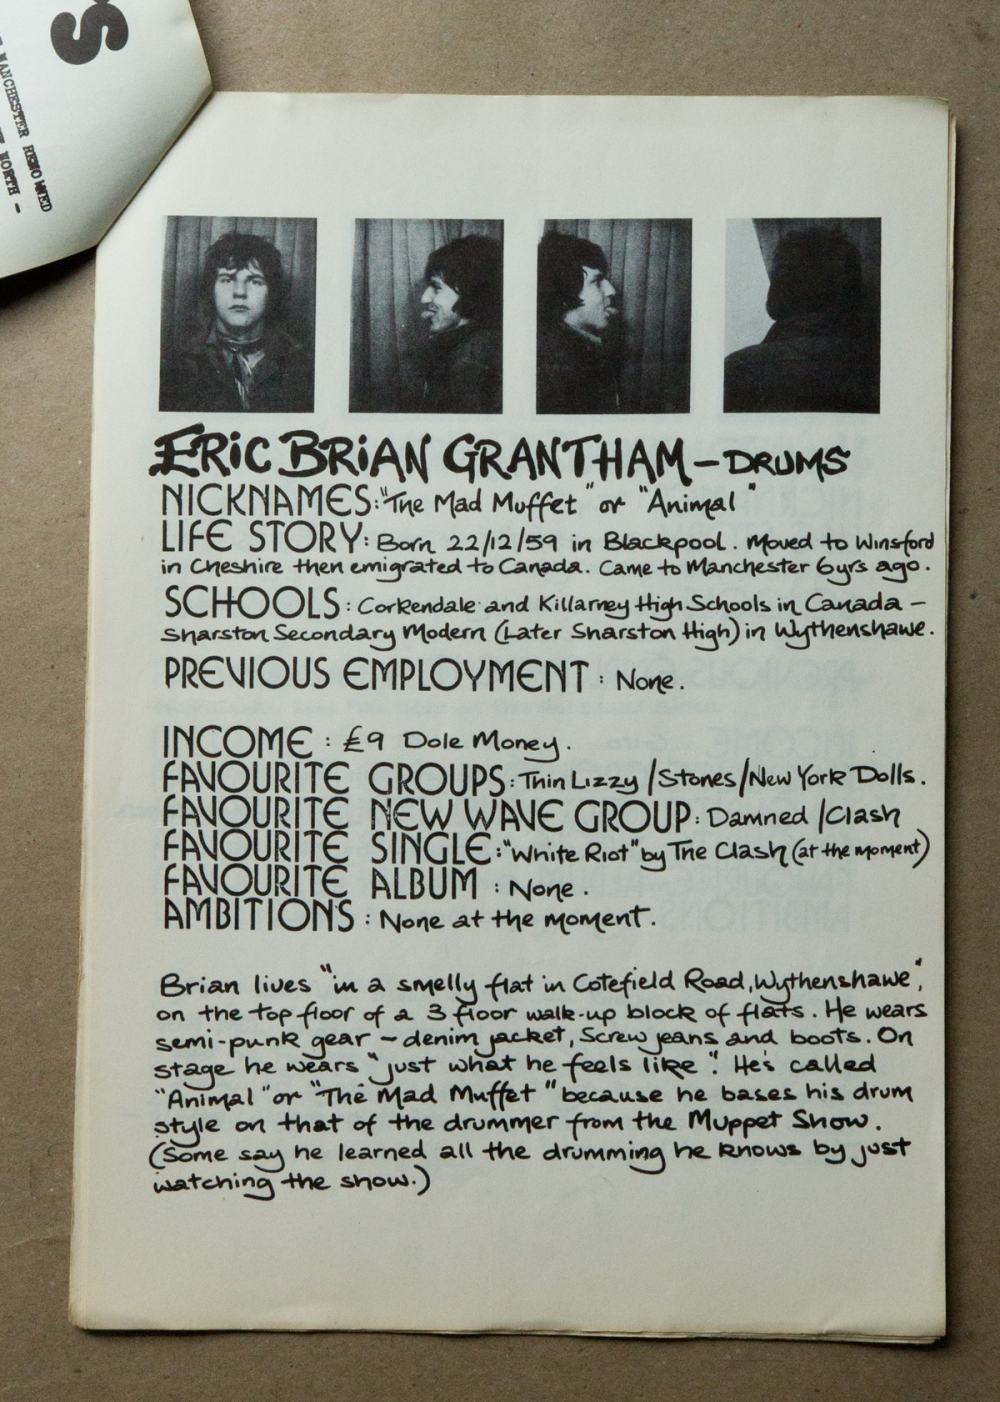 S
MANCHESTER RENOWNED
NORTH -
ERIC BRIAN GRANTHAM - DRUMS
NICKNAMES: "The Mad Muffet" or "Animal"
LIFE STORY: Born 22/12/59 in Blackpool. Moved to Winsford
in Cheshire then emigrated to Canada. Came to Manchester 6yrs ago.
SCHOOLS: Corkendale and Killarney High Schools in Canada -
Sharston Secondary Modern (Later Sharston High) in Wythenshawe.
PREVIOUS EMPLOYMENT: None.
INCOME: £9 Dole Money.
FAVOURITE GROUPS: Thin Lizzy/Stones/New York Dolls.
FAVOURITE NEW WAVE GROUP: Damned/Clash
FAVOURITE SINGLE: "White Riot" by The Clash (at the moment)
FAVOURITE ALBUM: None.
AMBITIONS: None at the moment.
Brian lives "in a smelly flat in Cotefield Road, Wythenshawe",
on the top floor of a 3 floor walk-up block of flats. He wears
semi-punk gear - denim jacket, Screw jeans and boots. On
stage he wears "just what he feels like". He's called
"Animal" or "The Mad Muffet" because he bases his drum
style on that of the drummer from the Muppet Show.
(Some say he learned all the drumming he knows by just
watching the show.)